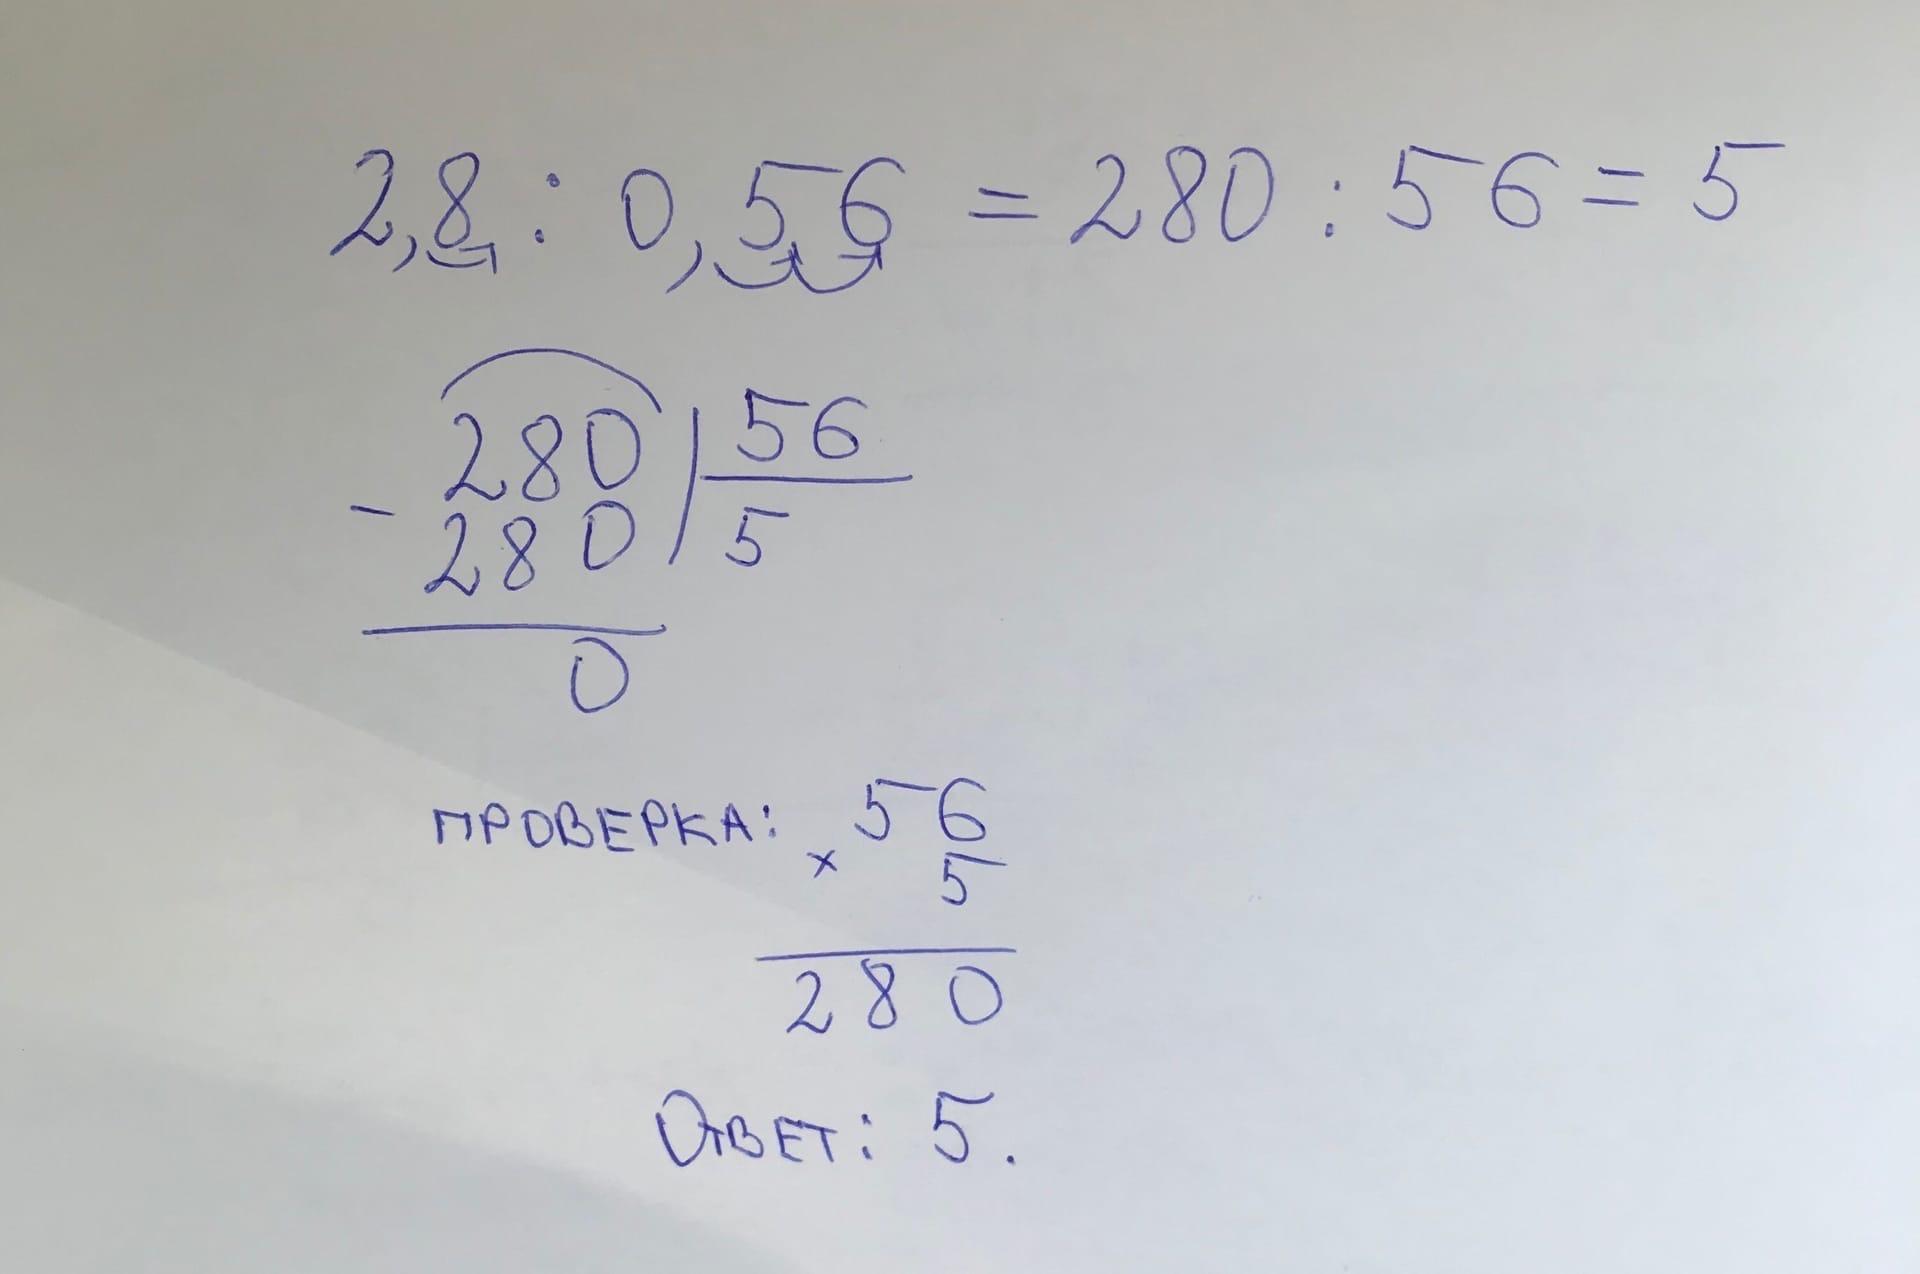 2,8 : 0,56 = 280 : 56 = 5
280 | 56
- 280 | 5
0
ПРОВЕРКА: 56
× 5
280
ОТВЕТ: 5.